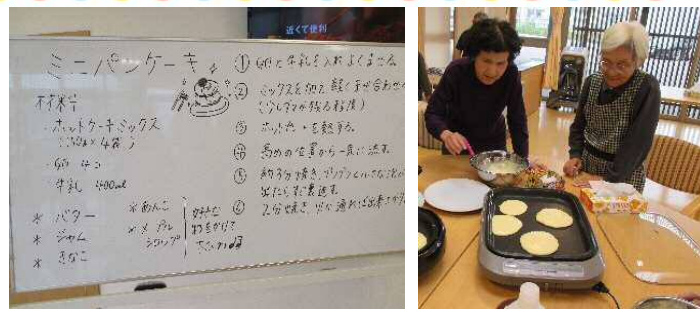 近くて便利
ミニパンケーキ
材料
・ホットケーキミックス
(150g×4袋)
・卵 4コ
・牛乳 400ml
* バター
* ジャム
* きなこ
* あんこ
* メープル
シロップ
好きな
ものをかけて
① 卵と牛乳を入れよくまぜる
② ミックスを加え軽くまぜ合わせ
(少しダマが残る程度)
③ ホットプレートを熱する。
④ 高めの位置から一気に流す。
⑤ 約3分焼き、プツプツと小さな泡が
出たら裏返す。
⑥ 2分焼き、火が通れば出来上がり